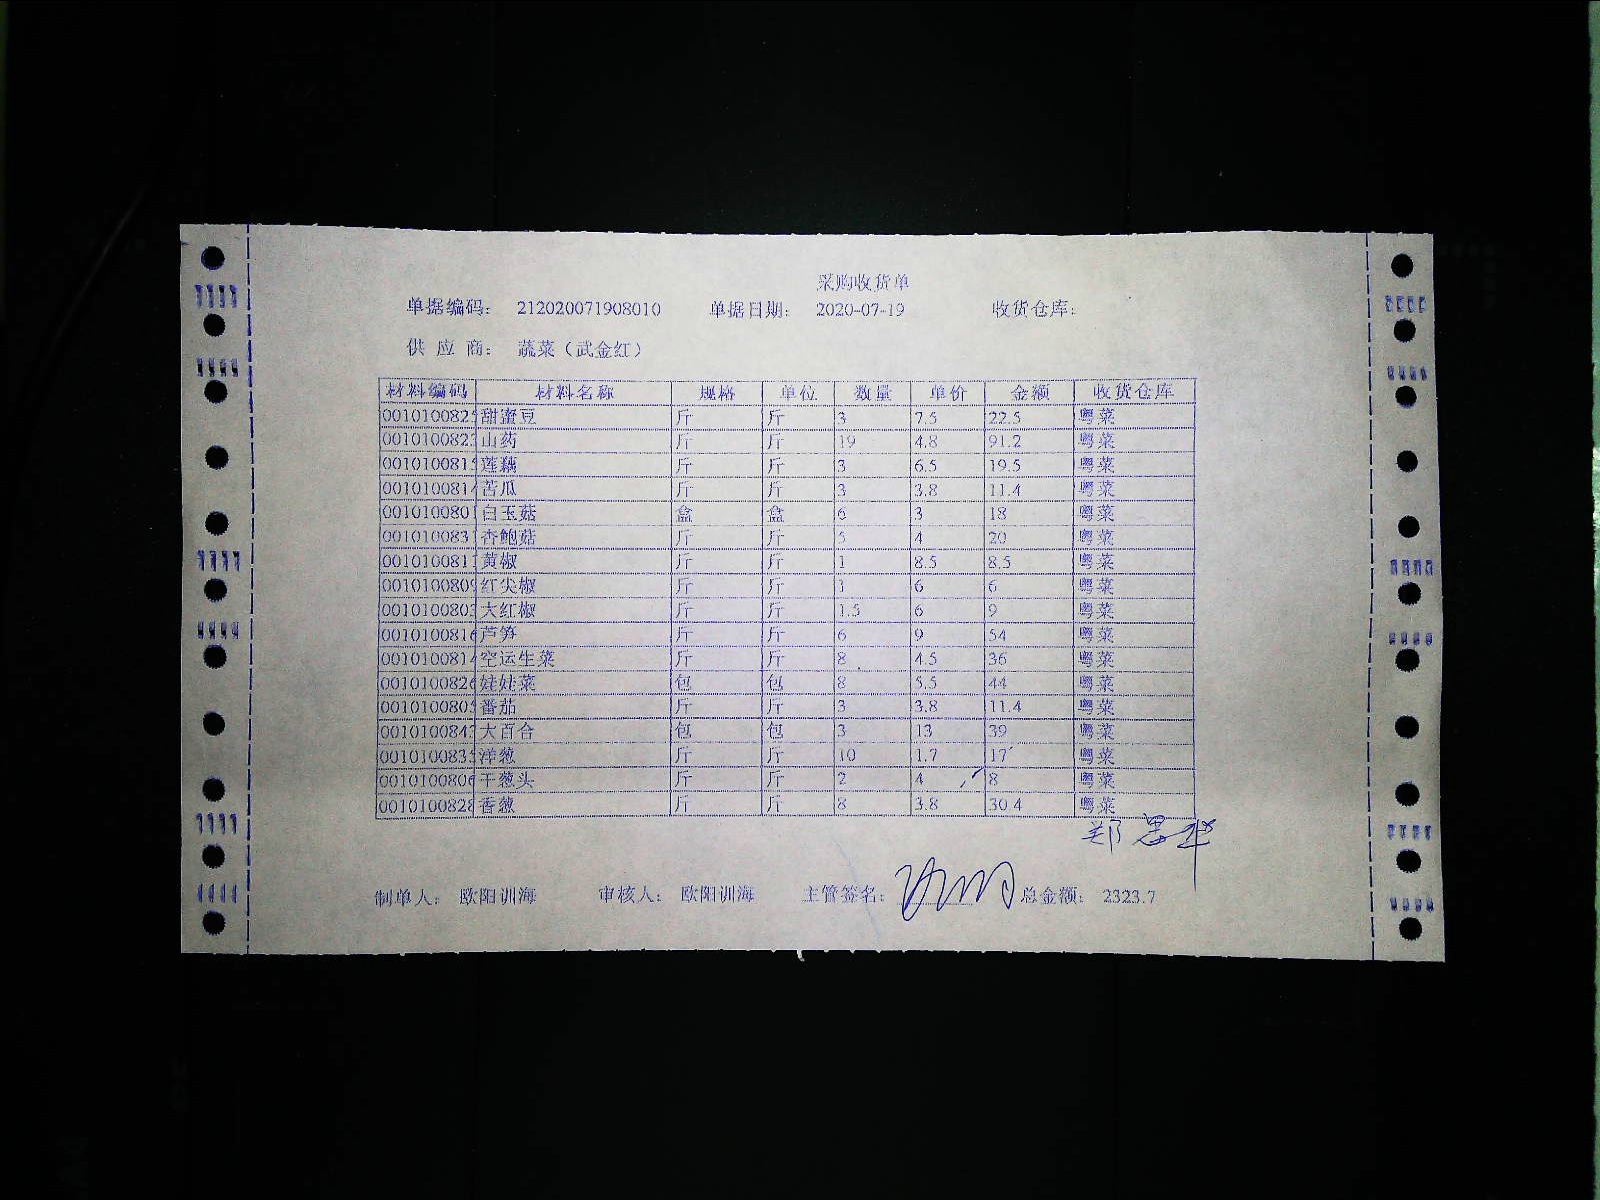 采购收货单
单据编码： 212020071908010 单据日期： 2020-07-19 收货仓库：
供 应 商： 蔬菜（武金红）
材料编码 材料名称 规格 单位 数量 单价 金额 收货仓库
0010100825 甜蜜豆 斤 斤 3 7.5 22.5 粤菜
001010082 山药 斤 斤 19 4.8 91.2 粤菜
001010081 莲藕 斤 斤 3 6.5 19.5 粤菜
001010081 苦瓜 斤 斤 3 3.8 11.4 粤菜
001010080 白玉菇 盒 盒 6 3 18 粤菜
001010083 杏鲍菇 斤 斤 5 4 20 粤菜
001010081 黄椒 斤 斤 1 8.5 8.5 粤菜
001010080 红尖椒 斤 斤 1 6 6 粤菜
001010080 大红椒 斤 斤 1.5 6 9 粤菜
0010100816 芦笋 斤 斤 6 9 54 粤菜
001010081 空运生菜 斤 斤 8 4.5 36 粤菜
0010100826 娃娃菜 包 包 8 5.5 44 粤菜
001010080 番茄 斤 斤 3 3.8 11.4 粤菜
001010084 大百合 包 包 3 13 39 粤菜
001010083 洋葱 斤 斤 10 1.7 17 粤菜
0010100806 干葱头 斤 斤 2 4 8 粤菜
0010100828 香葱 斤 斤 8 3.8 30.4 粤菜
制单人： 欧阳训海 审核人： 欧阳训海 主管签名： 总金额： 2323.7